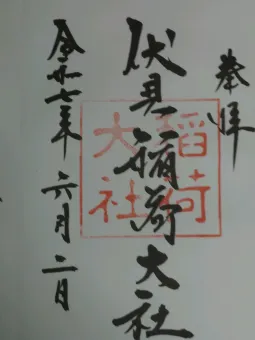 奉拝
伏見稲荷大社
稲荷
大社
令和七年 六月二日